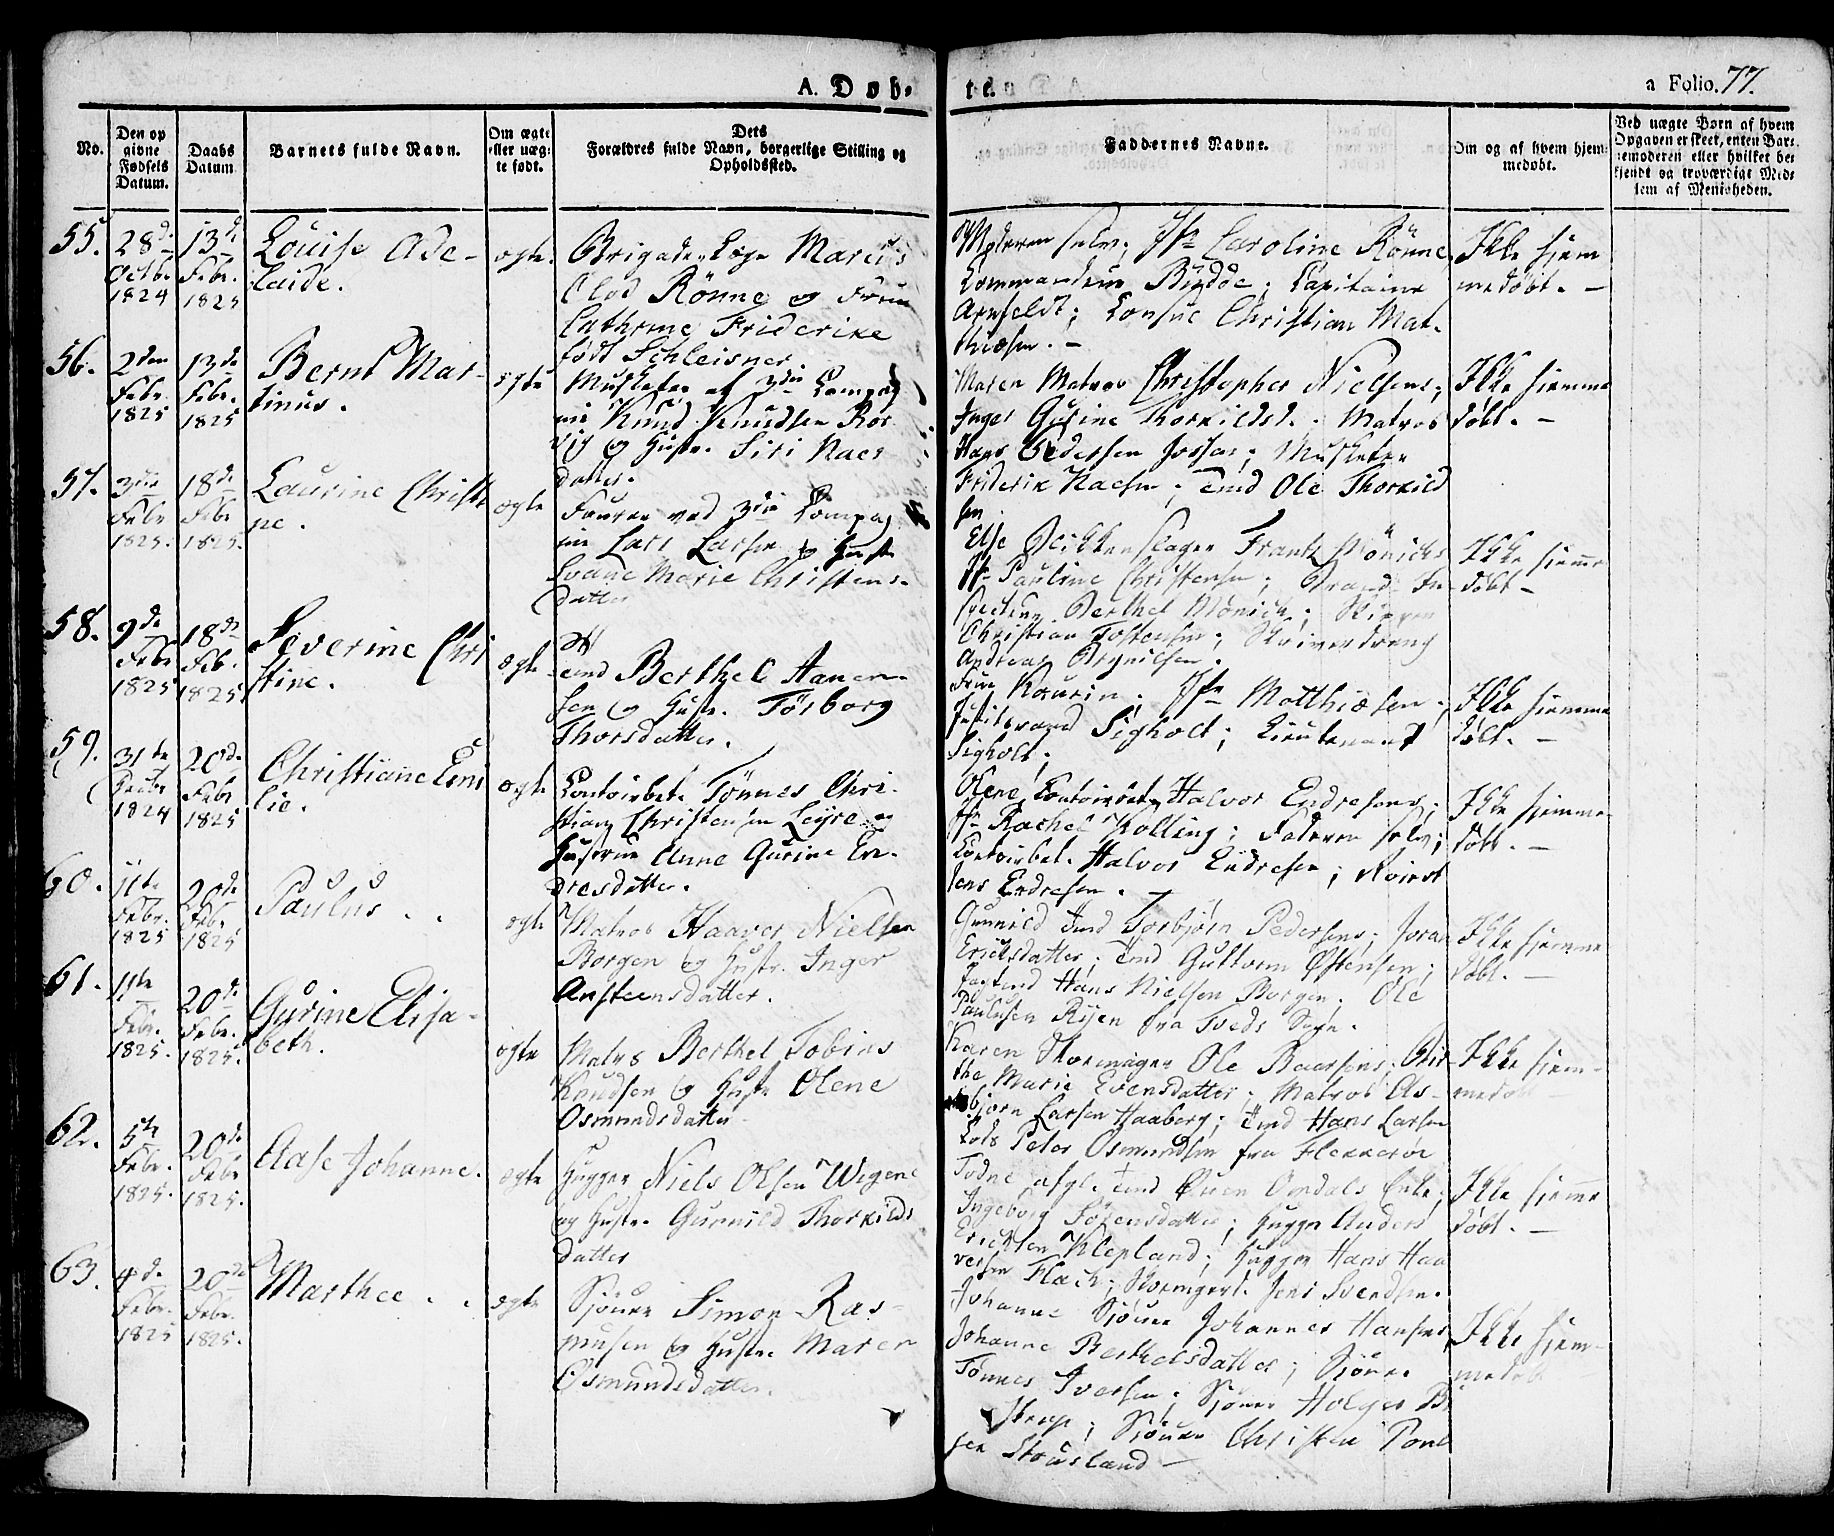 A. Døb-
te.
a Folio. 77.
No.
Den op
givne
Fødsels
Datum.
Daabs
Datum
Barnets fulde Navn.
Om ægte
eller uæg-
te født.
Dets
Forældres fulde Navn, borgerlige Stilling og
Opholdssted.
Faddernes Navne.
Om og af hvem hjem-
medøbt.
Ved uægte Børn af hvem
Opgaven er skeet, enten Bar-
nemoderen eller hvilket be-
kjendt og troværdigt Med-
lem af Menigheden.
55.
28de
Octbr
1824
13de
Febr.
1825
Louise Ade-
laide.
ægte.
Brigadelæge Marcus
Olod Rönne og Frue
Cathrine Friderike
født Schleisner.
Moderen selv; Jfr Caroline Rönne,
Commandeur Budde; Capitaine
Arnfeldt; Consul Christian Mat-
thiesen. -
Ikke hjem
medøbt. -
56.
2den
Febr
1825
13de
Febr.
1825
Bernt Mar-
tinus.
ægte
Musketer af 3die Compag
nie Knud Knudsen Ros
vig og Hustr. Siri Naes
datter.
Maren Matros Christopher Nielsens;
Inger Gurine Thorkildsd.; Matros
Hans Pedersen; Musketer
Friderik Naesen; Ole Thorkild
sen.
Ikke hjemme
døbt. -
57.
3die
Febr
1825.
18de
Febr
1825.
Laurine Christi
ne.
ægte
Fourer ved 3die Compag
nie Lars Larsen og Hustr
Marie Christens-
datter
Else Frantz Mönichs
Jfr Pauline Christensen; Brand In-
specteur Berthel Mönich;
Christian Tostensen; Skriverdreng
Andreas
Ikke hjemme
døbt -
58.
9de
Febr
1825
18de
Feb.
1825
Severine Chri
stine.
ægte
Berthel Aanen-
sen og Hustr. Torborg
Thorsdatter.
Frue; Jfr Matthiesen;
Sigholt; Lieutenant
Sigholt.
Ikke hjemme
døbt. -
59.
31te
1824
20de
Febr
1825
Christiane Emi
lie.
ægte
Contoirbet. Tönnes Chri-
stian Christensen Leyre og
Hustrue Anne Gurine En-
dresdatter.
Olene Contoirbet. Halvor Endresens;
Jfr Rachel Kolling; Faderen selv;
Contoirbet. Halvor Endresen;
Jens Endresen. -
Ikke hjemme-
døbt. -
60.
11te
Febr.
1825
20de
Febr
1825
Paulus . .
ægte
Matros Haavor Nielsen
Borgen og Hustr. Inger
Ansteensdatter.
Gunnild Torbjørn Pedersens;
Ericksdatter; Guttorm Østensen;
Hans Nielsen Borgen; Ole
Paulusen Ryen fra Tveds Sogn.
Ikke hjemme
døbt. -
61.
11te
Febr.
1825.
20de
Febr.
1825.
Gurine Elisa-
beth.
ægte
Matros Berthel Tobias
Knudsen og Hustr Olene
Osmundsdatter
Karen Ole; Bir-
the Marie Evensdatter; Matros As-
bjørn Larsen Haaberg; Hans Larsen
Lods Peter Osmundsen fra Flekkerøe
Ikke hjem-
medøbt -
62.
5te
Febr.
1825.
20de
Febr
1825.
Aase Johanne.
ægte
Hugger Niels Olsen Wegene
og Hustr. Gunnild Thorkilds
datter
Enke;
Ingeborg Sörensdatter; Hugger Anders
Ericksen Klepland; Hugger Hans Haa
versen Flach; Jens Svendsen.
Ikke hjemme
døbt. -
63.
4de
Febr.
1825
20de
Febr.
1825.
Marthee . .
ægte
Sjöuer Simon Ras-
musen og Hustr. Maren
Osmundsdatter.
Johanne Sjöuer Johannes Hansens,
Johanne Berthelsdatter; Sjöuer
Tönnes Iversen; Sjöuer Holger Bi
strup; Sjöuer Christen Povel
sen Stousland -
Ikke hjem-
medøbt